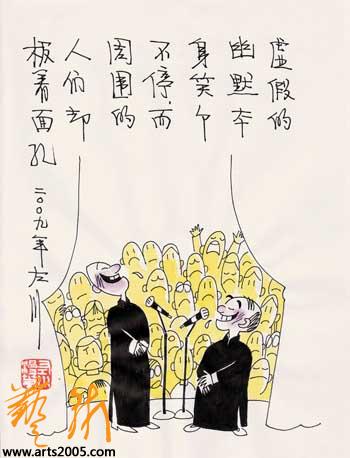 虚假的
幽默本
身笑个
不停,而
周围的
人们却
板着面孔
二〇〇九年左川
藝術
www.arts2005.com